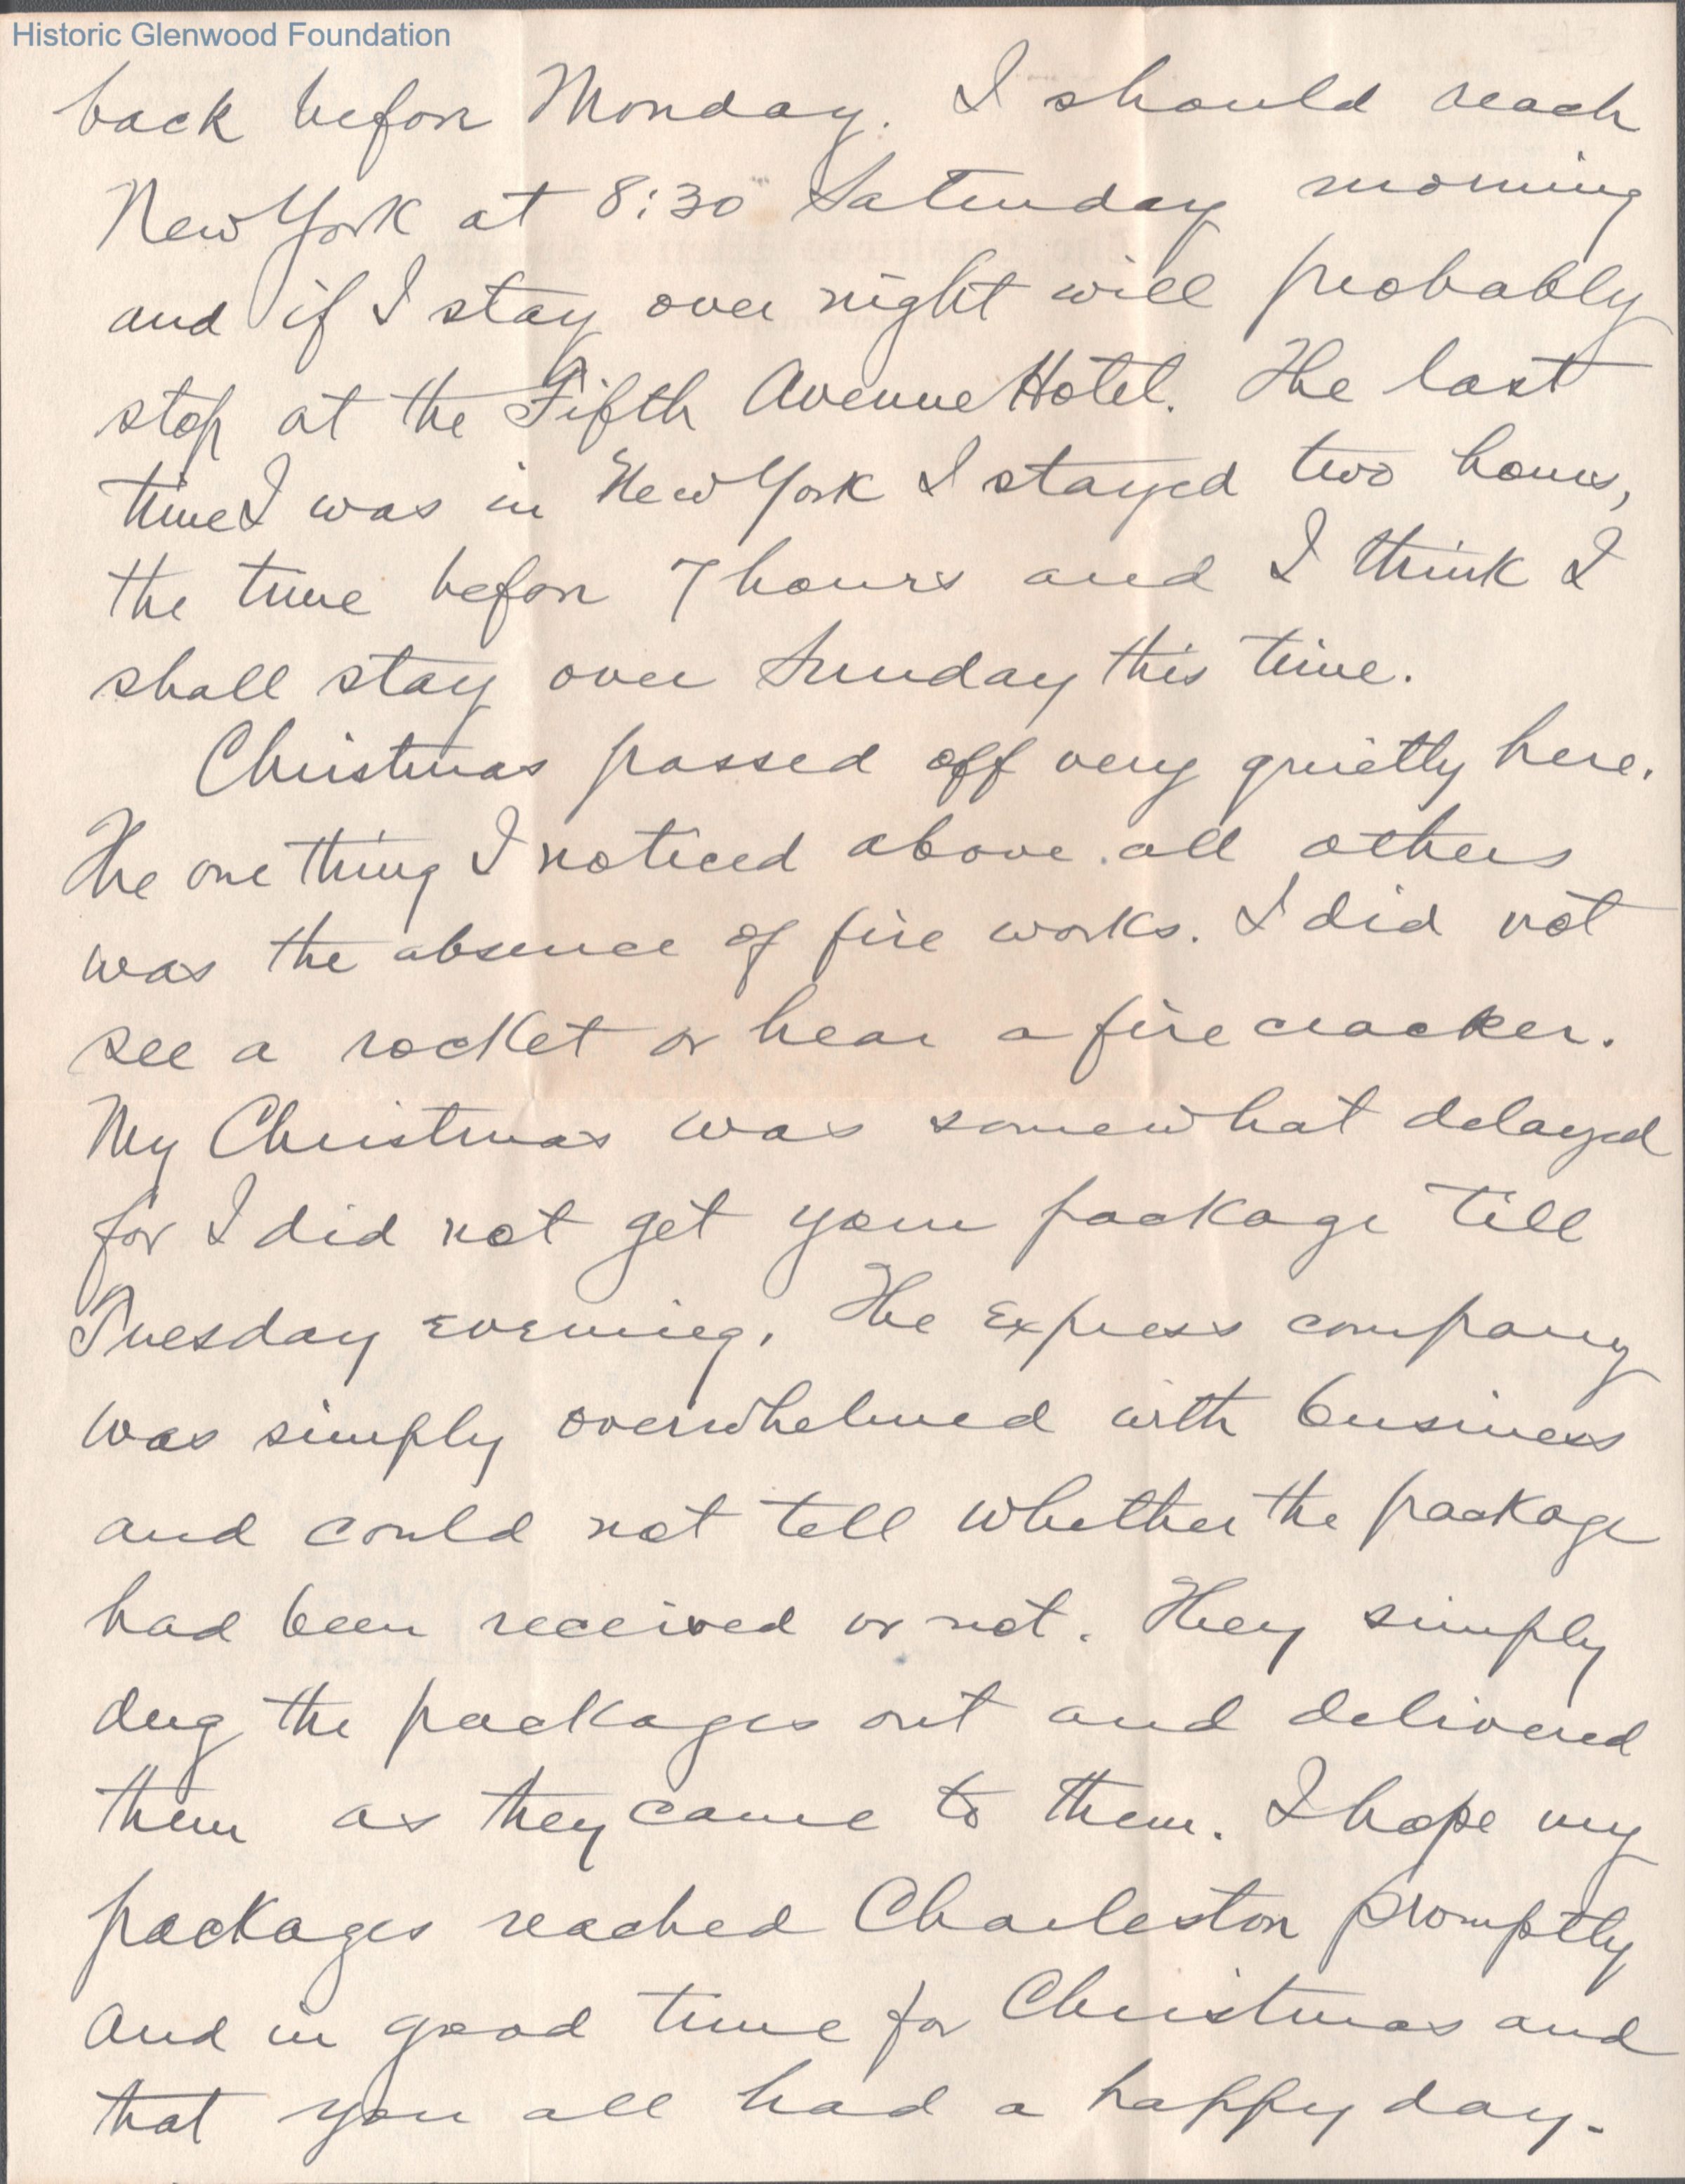 Historic Glenwood Foundation
back before Monday. I should reach
New York at 8:30 Saturday morning
and if I stay over night will probably
stop at the Fifth Avenue Hotel. The last
time I was in New York I stayed two hours,
the time before 7 hours and I think I
shall stay over Sunday this time.
Christmas passed off very quietly here.
The one thing I noticed above all others
was the absence of fire works. I did not
see a rocket or hear a fire cracker.
My Christmas was somewhat delayed
for I did not get your package till
Tuesday evening. The Express company
was simply overwhelmed with business
and could not tell whether the package
had been received or not. They simply
dug the packages out and delivered
them as they came to them. I hope my
packages reached Charleston promptly
and in good time for Christmas and
that you all had a happy day.